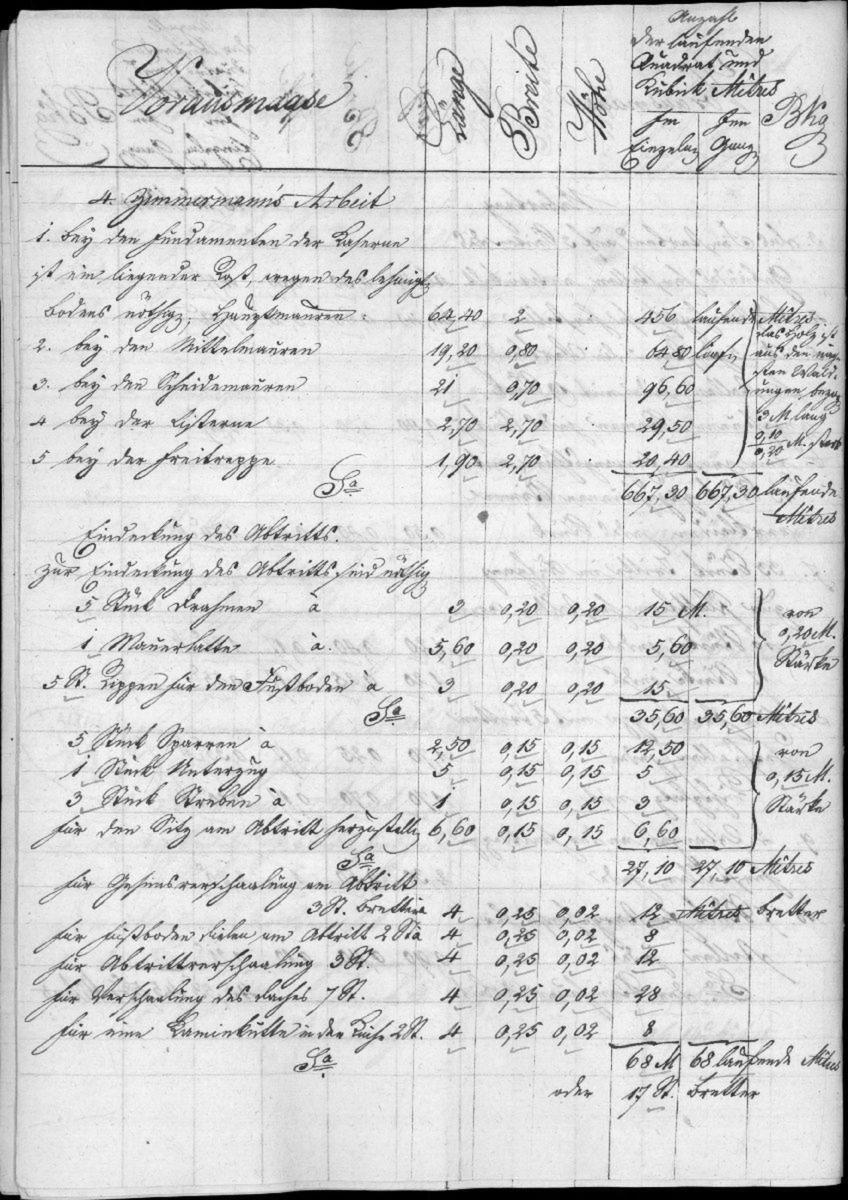 Vorausmaase Länge Breite Höhe Anzahl der laufenden Quadrat und Kubick Mètres Im Einzeln Im Ganzen Bkg
4. Zimmermann's Arbeit
1. bey den Fundamenten der Caserne
ist ein liegender Rost, wegen des lehmigt
Bodens nöthig; Hauptmauren: 64,40 2 · 456 laufende Mètres
2. bey den Mittelmauren 19,20 0,80 · 64 80
3. bey den Scheidemauren 21 0,70 96,60
4 bey der Cisterne 2,70 2,70 · 29,50
5 bey der Freitreppe 1,90 2,70 · 20,40
das Holz ist
aus den
Wald
ungen
3 M lang
0,10
0,20 M. stark
Sa 667,30 667,30 laufende
Mètres
Eindeckung des Abtritts.
Zur Eindeckung des Abtritts sind nöthig
5 Stück Drahmen à 3 0,20 0,20 15 M.
1 Mauerlatte à. 5,60 0,20 0,20 5,60
5 St. Rippen für den Fußboden à 3 0,20 0,20 15
von
0,20 M.
Stärke
Sa 35,60 35,60 Mètres
5 Stück Sparren à 2,50 0,15 0,15 12,50
1 Stück Unterzug 5 0,15 0,15 5
3 Stück Streben à 1 0,15 0,15 3
für den Sitz am Abtritt herzustellen 6,60 0,15 0,15 6,60
von
0,15 M.
Stärke
Sa 27,10 27,10 Mètres
für Gesimsverschaalung am Abtritt
3 St. Bretter à 4 0,25 0,02 12 Mètres Bretter
für Fußboden dielen am Abtritt 2 St à 4 0,25 0,02 8
für Abtrittverschaalung 3 St. 4 0,25 0,02 12
für Verschaalung des Daches 7 St. 4 0,25 0,02 28
für eine Kaminkutte in der Küche 2 St. 4 0,25 0,02 8
Sa 68 M 68 laufende Mètres
oder 17 St. Bretter